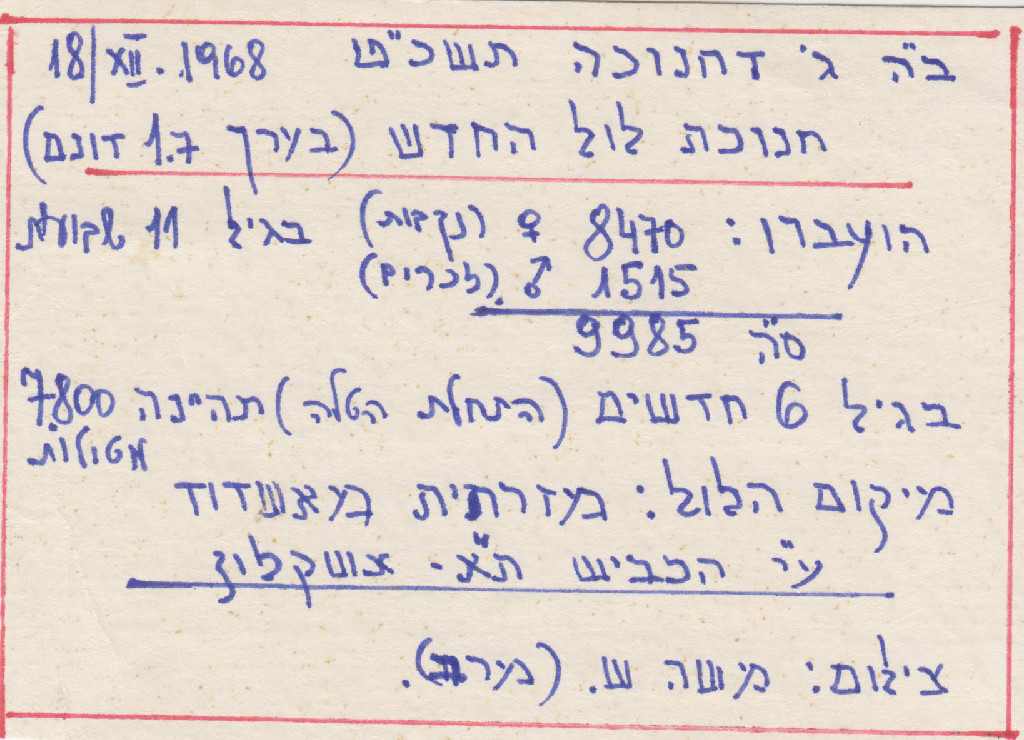 ב"ה ג' דחנוכה תשכ"ט 18/XII.1968
חנוכת לול החדש (בערך 1.7 דונם)
הועברו: 8470 ♀ (נקבות) בגיל 11 שבועות
1515 ♂ (זכרים)
ס"ה 9985
בגיל 6 חדשים (התחלת הטלה) תהינה 7800
מטילות
מיקום הלול: מזרחית מאשדוד
ע"י הכביש ת"א - אשקלון
צילום: משה ש. (מירון).